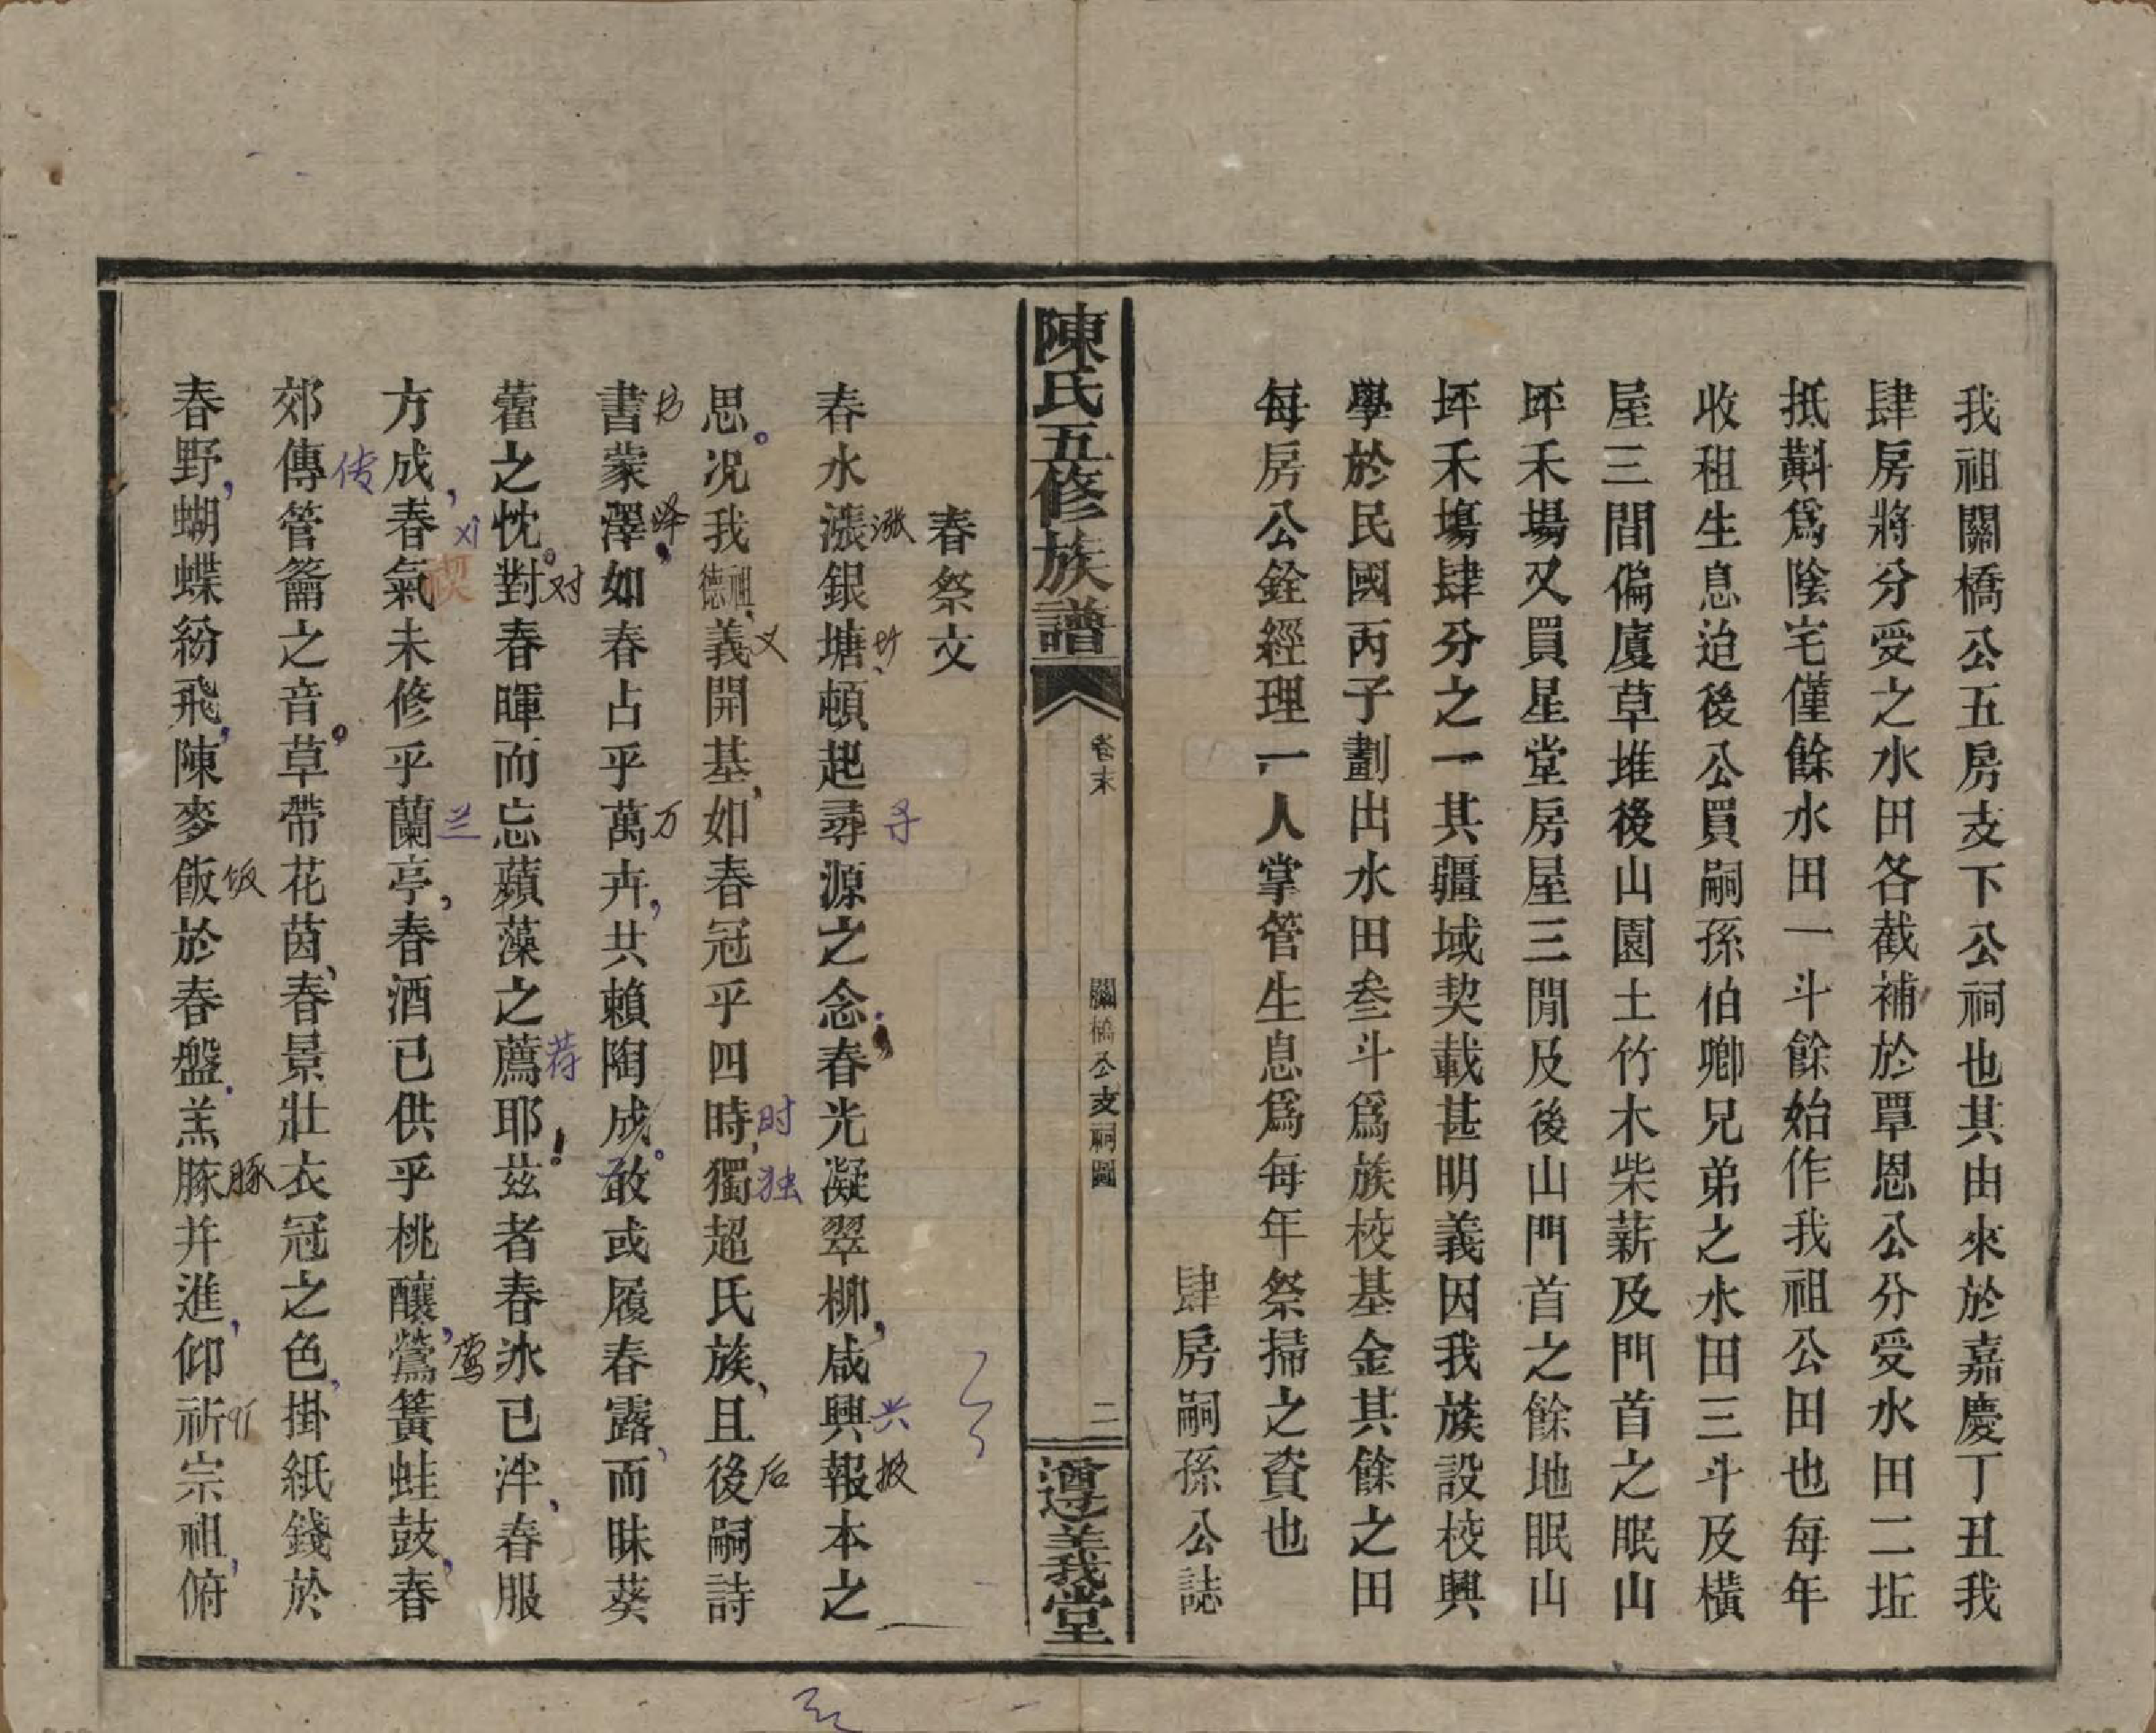 我祖關橋公五房支下公祠也其由來於嘉慶丁丑我
肆房將分受之水田各截補於覃恩公分受水田二坵
抵斢爲陰宅僅餘水田一斗餘始作我祖公田也每年
收租生息迨後公買嗣孫伯卿兄弟之水田三斗及橫
屋三間偏廈草堆後山園土竹木柴薪及門首之眠山
坪禾場又買星堂房屋三間及後山門首之餘地眠山
坪禾塲肆分之一其疆域契載甚明義因我族設校興
學於民國丙子劃出水田叁斗爲族校基金其餘之田
每房公銓經理一人掌管生息爲每年祭掃之資也
肆房嗣孫公誌
陳氏五修族譜
卷末
關橋公支祠圖
二
義堂
春祭文
春水漲銀塘頓起尋源之念春光凝翠柳咸興報本之
思况我祖德義開基如春冠乎四時獨超氏族且後嗣詩
書蒙澤如春占乎萬卉共賴陶成敢或履春露而昧葵
藿之忱對春暉而忘蘋藻之薦耶茲者春冰已泮春服
方成春氣未修乎蘭亭春酒已供乎桃釀鶯簧蛙鼓春
郊傳管籥之音草帶花茵春景壯衣冠之色掛紙錢於
春野蝴蝶紛飛陳麥飯於春盤羔豚并進仰祈宗祖俯
涨
寻
兴
报
义
时
独
后
书
泽
万
对
荐
契
兰
莺
传
饭
豚